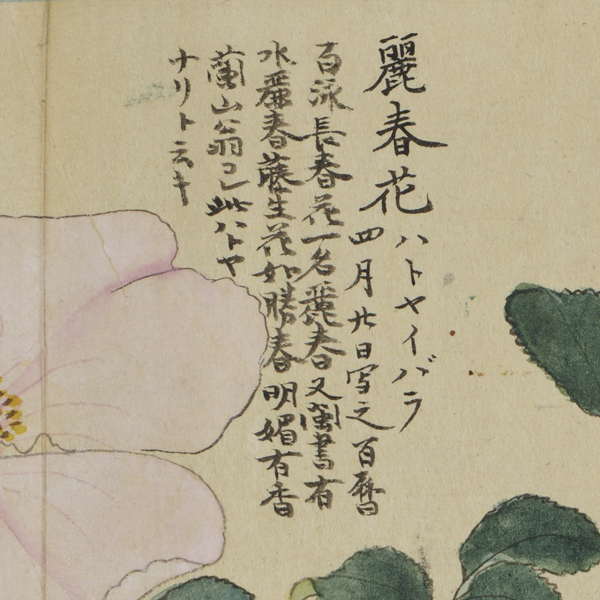 麗春花
ハトヤイバラ
四月廿日写之 百暦
百泳長春花一名麗春又蘭書有
水麗春藤生花如勝春明媚有香
蘭山翁コレ此ハトヤ
ナリト云キ